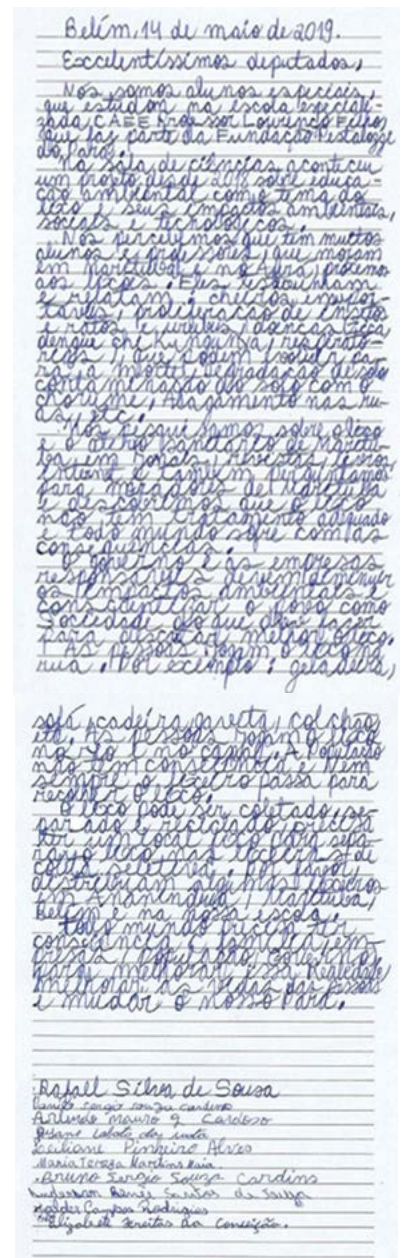 Belém, 14 de maio de 2019.
Excelentíssimos deputados,
Nós somos alunos especiais,
que estudam na escola especiali-
zada, CAEE Professor Lourenço Filho
que faz parte da Fundação Pestalozzi
do Pará.
Na sala de ciências aconteceu
um projeto desde 2018 sobre educa-
ção ambiental com o tema do
lixo e seus impactos ambientais,
sociais e tecnológicos.
Nós percebemos que tem muitos
alunos e professores, que moram
em Marituba e no Aurá, próximo
aos lixões. Eles
e relatam: cheiros insupor-
táveis, proliferação de insetos
e ratos e urubus, doenças
dengue, chikungunya, respirató-
rias, que podem
a morte, degradação do solo
contaminando do solo com o
chorume, alagamento nas ru-
as, etc.
Nós pesquisamos sobre o lixo
e o aterro sanitário de Maritu-
ba em jornais, revistas,
internet e também perguntamos
para moradores de Marituba
e descobrimos que o lixo
não tem tratamento adequado
e todo mundo sofre com as
consequências.
O governo e as empresas
responsáveis devem diminuir
os impactos ambientais e
conscientizar o povo como
sociedade do que deve fazer
para descartar melhor o lixo.
As pessoas jogam o lixo na
rua. Por exemplo: geladeira,
sofá, cadeira, gaveta, colchão,
etc. As pessoas jogam o lixo
no rio e no canal. A população
não tem consciência. Nem
sempre o lixeiro passa para
recolher o lixo.
O lixo pode ser coletado, se-
parado e reciclado, precisa
ter um local certo para sepa-
rar o lixo nas lixeiras de
coleta seletiva. Por favor,
distribuam algumas lixeiras
em Ananindeua, Marituba,
Belém e na nossa escola.
Todo mundo precisa ter
consciência: família, em-
presa, população, governo
para melhorar essa realidade,
melhorar as vidas das pessoas
e mudar o nosso Pará.
Rafaell Silva de Sousa
Danilo Sergio Souza Cardins
Arlindo Mauro Q Cardoso
Lobato da
Leiliane Pinheiro Alves
Maria Tereza Martins Maia.
Bruno Sergio Souza Cardins
Anderson Renêe Santos de Souza
Helder Campos Rodrigues
Elizabete Freitas da Conceição.